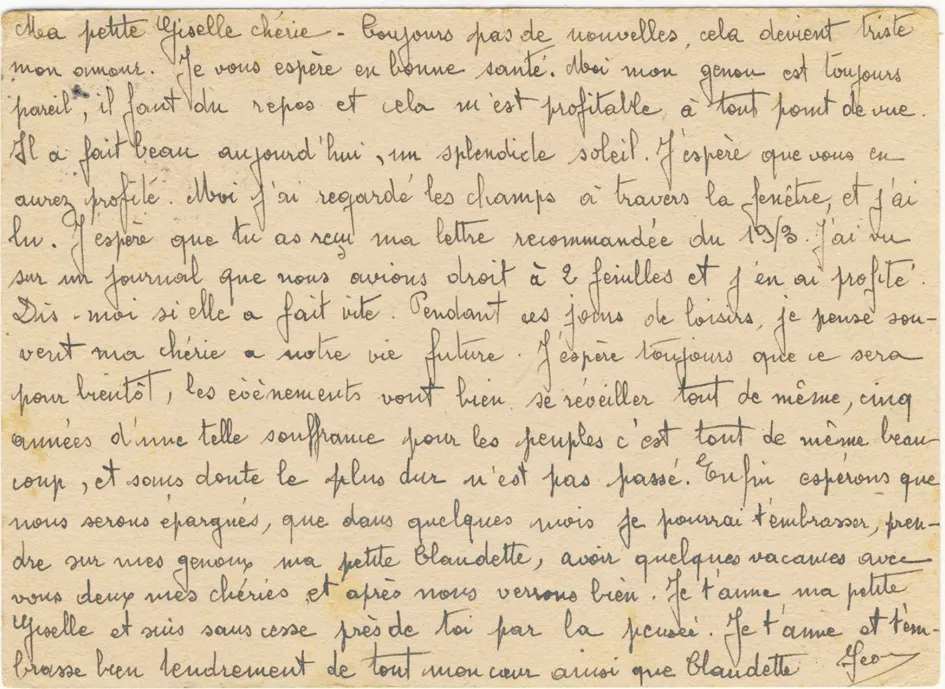 Ma petite Giselle chérie - Toujours pas de nouvelles, cela devient triste
mon amour. Je vous espère en bonne santé. Moi mon genou est toujours
pareil, il faut du repos et cela m'est profitable à tout point de vue.
Il a fait beau aujourd'hui, un splendide soleil. J'espère que vous en
aurez profité. Moi j'ai regardé les champs à travers la fenêtre, et j'ai
lu. J'espère que tu as reçu ma lettre recommandée du 19/3. J'ai vu
sur un journal que nous avions droit à 2 feuilles et j'en ai profité.
Dis-moi si elle a fait vite. Pendant ces jours de loisirs, je pense sou-
vent ma chérie a notre vie future. J'espère toujours que ce sera
pour bientôt, les évènements vont bien se réveiller tout de même, cinq
années d'une telle souffrance pour les peuples c'est tout de même beau-
coup, et sans doute le plus dur n'est pas passé. Enfin espérons que
nous serons épargnés, que dans quelques mois je pourrai t'embrasser, pren-
dre sur mes genoux ma petite Claudette, avoir quelques vacances avec
vous deux mes chéries et après nous verrons bien. Je t'aime ma petite
Giselle et suis sans cesse près de toi par la pensée. Je t'aime et t'em-
brasse bien tendrement de tout mon cœur ainsi que Claudette Geo